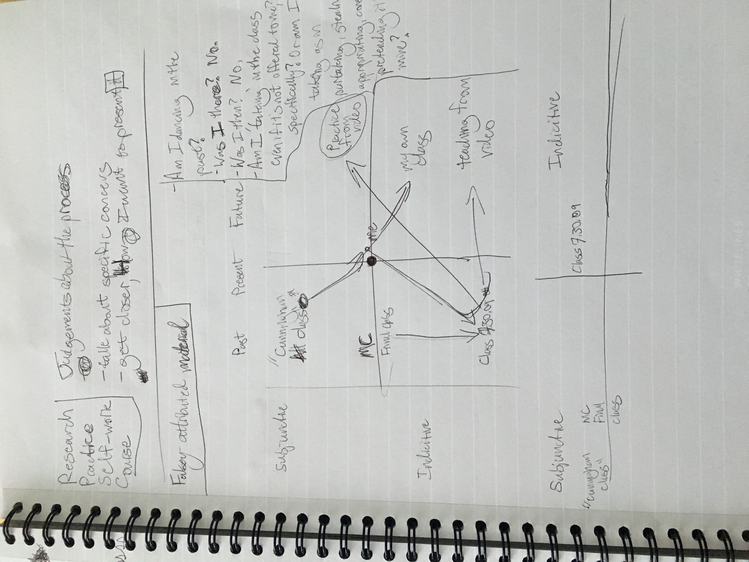 Research
Practice
Self-work
Course
Judgements about the process
- talk about specific concerns
- get closer, how I want to present it
Falsely attributed material
- Am I dancing in the
past?
- Was I there? No.
- Was I then? No.
- Am I "taking" in the class
even if it's not offered to me?
specifically? Or am I
taking as in
partaking,
appropriating,
pretending it's
mine?
Past Present Future
Subjunctive
"Cunningham
class"
me
Practice
from
video
MC
Final class
my own
class
Indicitive
Class 7.30.09
teaching from
video
Subjunctive
Indicitive
"Cunningham
class"
MC
Final
class
Class 7.30.09